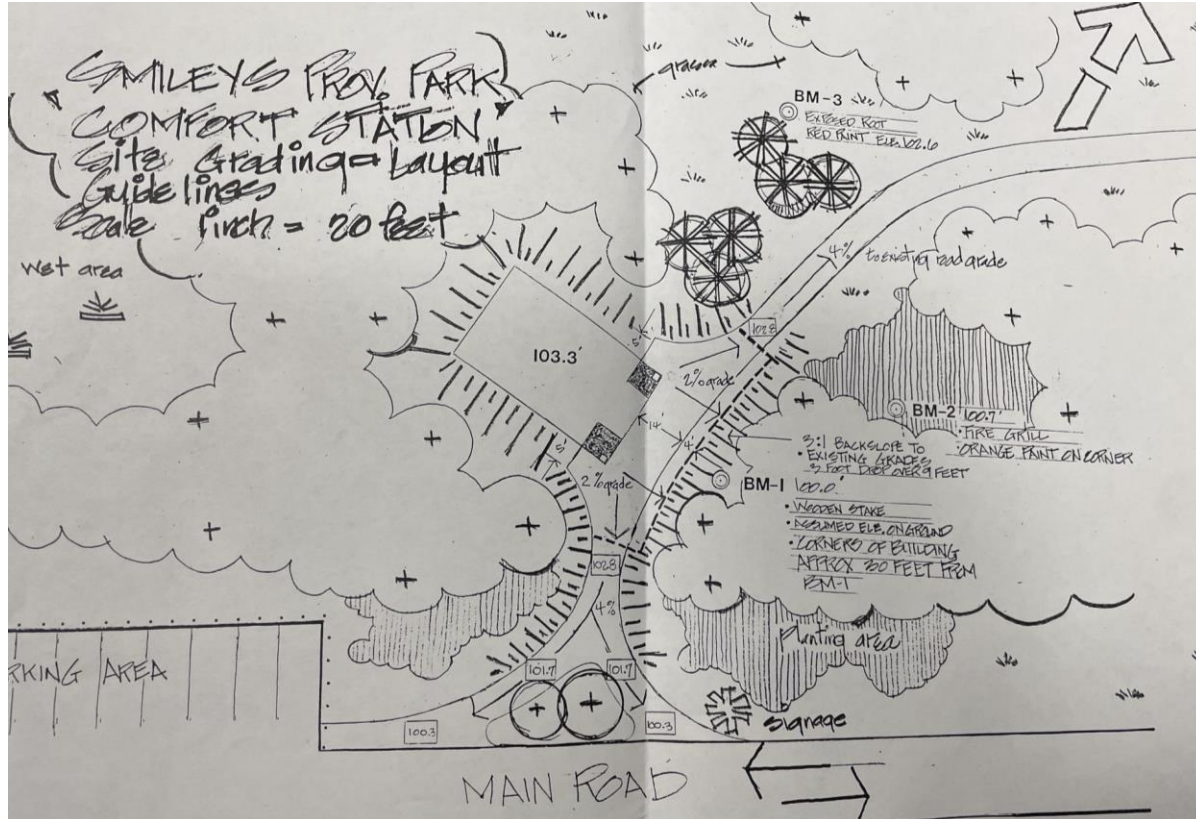 "SMILEYS PROV. PARK
COMFORT STATION"
Site Grading = Layout
Guidelines
Scale 1 inch = 20 feet
wet area
grasses
BM-3
EXPOSED ROOT
RED PAINT ELE. 102.6
4% to existing road grade
103.3'
5'
102.8
2% grade
14'
4'
BM-2 100.7'
• FIRE GRILL
• ORANGE PAINT ON CORNER
3:1 BACKSLOPE TO
• EXISTING GRADES
3 FOOT DROP OVER 9 FEET
BM-1 100.0'
• WOODEN STAKE
• ASSUMED ELE. ON GROUND
• CORNERS OF BUILDING
APPROX 30 FEET FROM
BM-1
5'
2% grade
102.8
4%
101.7
101.7
Planting area
RKING AREA
100.3
100.3
Signage
MAIN ROAD